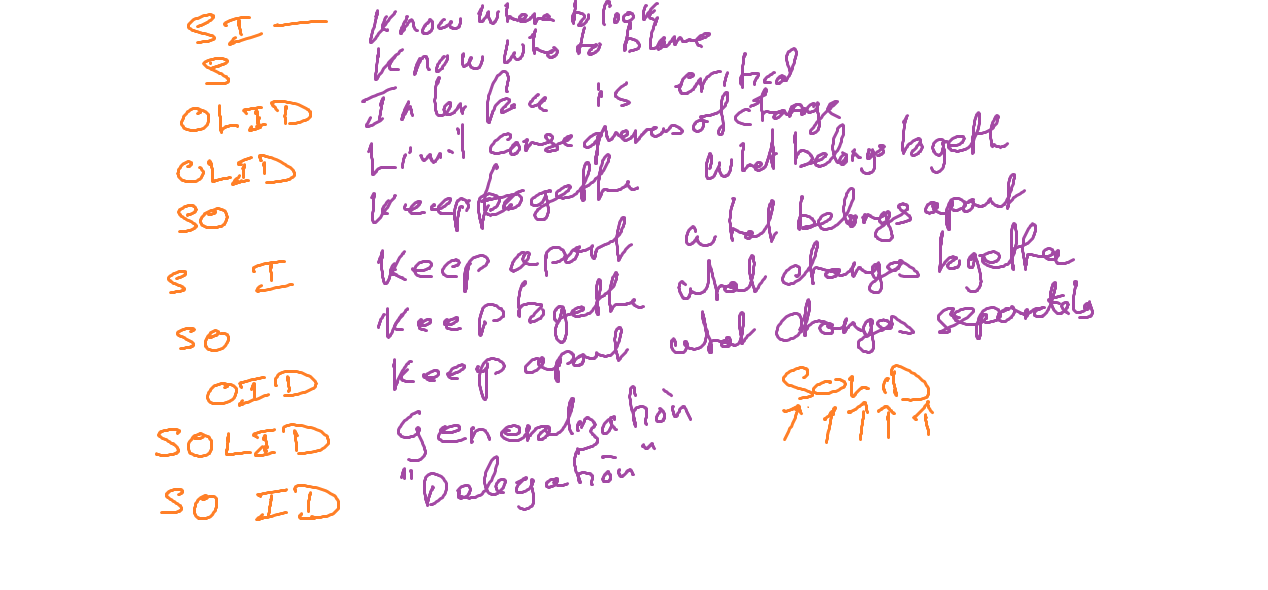 SI — Know where to look
S Know who to blame
OLID Interface is critical
OLID Limit consequences of change
SO Keep together what belongs togeth
S I Keep apart what belongs apart
SO Keep togethe what changes together
OID Keep apart what changes separately
SOLID Generalization
SO ID "Delegation"
SOLID